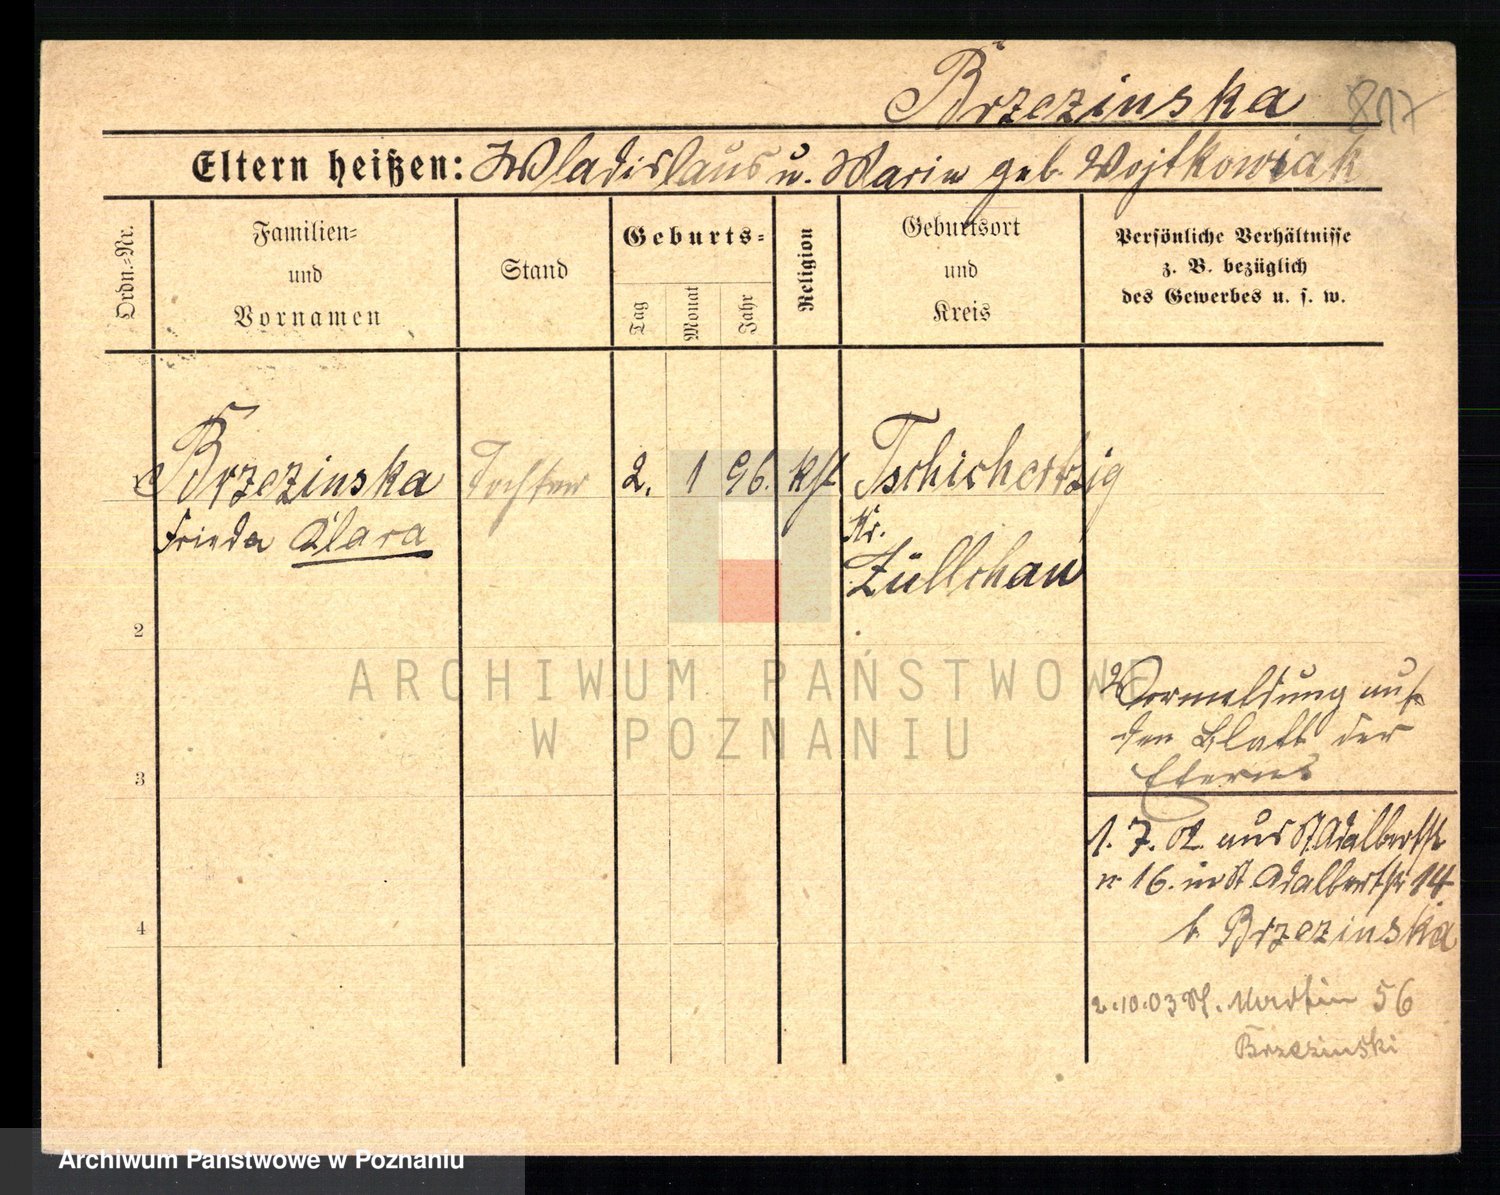 Brzezinska 817
Eltern heißen: Wladislaus u. Marie geb. Wojtkowiak
Ordn.-Nr.
Familien-
und
Vornamen
Stand
Geburts-
Tag
Monat
Jahr
Religion
Geburtsort
und
Kreis
Persönliche Verhältnisse
z. B. bezüglich
des Gewerbes u. s. w.
Brzezinska Tochter 2. 1 96. kth Tschichertzig
Frieda Clara Kr.
Züllichau
2
Vormeldung auf
dem Blatt der
Eltern
3
1. 7. 02. aus St. Adalbertstr
n 16. in St Adalbertstr 14
b Brzezinska
4
2.10.03 St. Martin 56
Brzezinski
ARCHIWUM PAŃSTWOWE
W POZNANIU
Archiwum Państwowe w Poznaniu